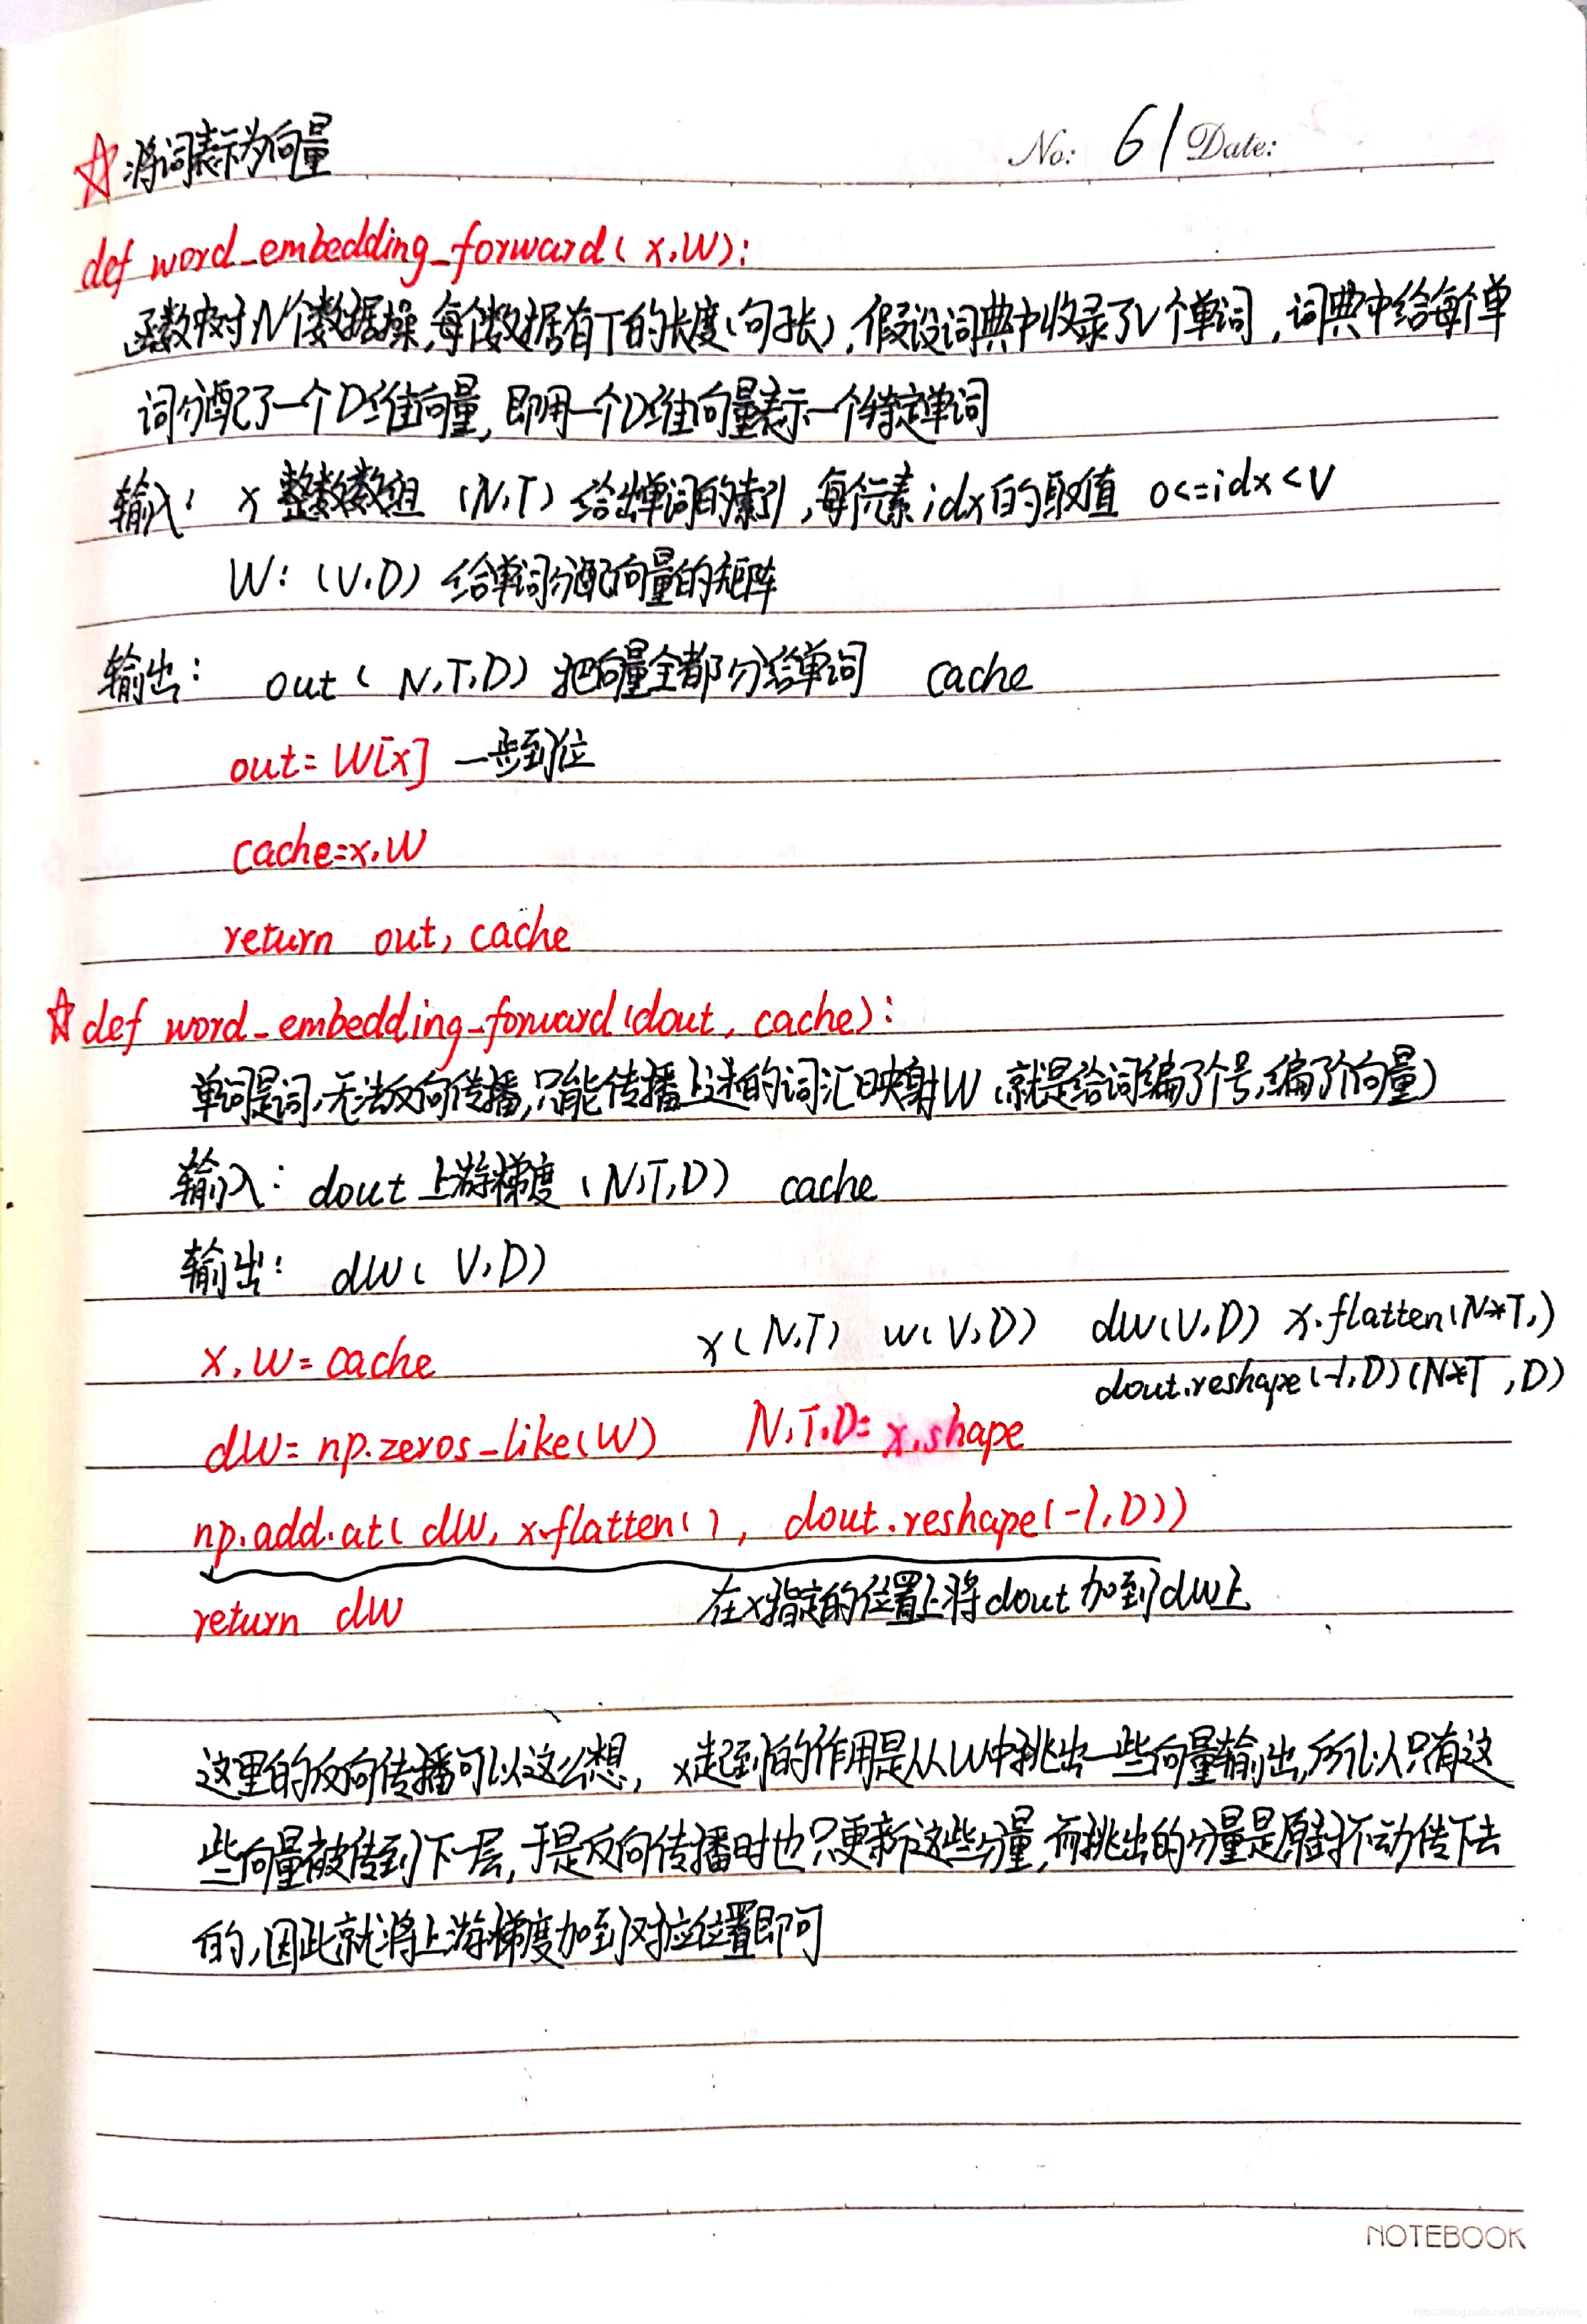 ☆将词表示为向量
No: 61 Date:
def word_embedding_forward(x,W):
函数中对N个数据操,每个数据有T的长度(句子长),假设词典中收录了V个单词,词典中给每个单
词分配了一个D维向量,即用一个D维向量表示一个特定单词
输入: x 整数数组 (N,T) 给出单词的索引,每个元素idx的取值 0<=idx<V
W: (V,D) 给单词分配向量的矩阵
输出: out (N,T,D) 把向量全都分给单词 cache
out=W[x] 一步到位
cache=x,W
return out, cache
☆def word_embedding_forward(dout, cache):
单词是词,无法反向传播,只能传播上述的词汇映射W(就是给词编了个号,编了个向量)
输入: dout 上游梯度 (N,T,D) cache
输出: dW (V,D)
x(N,T) w(V,D) dw(V,D) x.flatten(N*T,)
x, W=cache
dout.reshape(-1,D)(N*T,D)
dW=np.zeros_like(W) N,T,D=x.shape
np.add.at(dW, x.flatten(), dout.reshape(-1,D))
return dW 在x指定的位置上将dout加到dW上
这里的反向传播可以这么想, x起到的作用是从W中挑出一些向量输出,所以只有这
些向量被传到下一层,于是反向传播时也只更新这些分量,而挑出的分量是原封不动传下去
的,因此就将上游梯度加到对应位置即可
NOTEBOOK
https://blog.csdn.net/LittleGreyWing